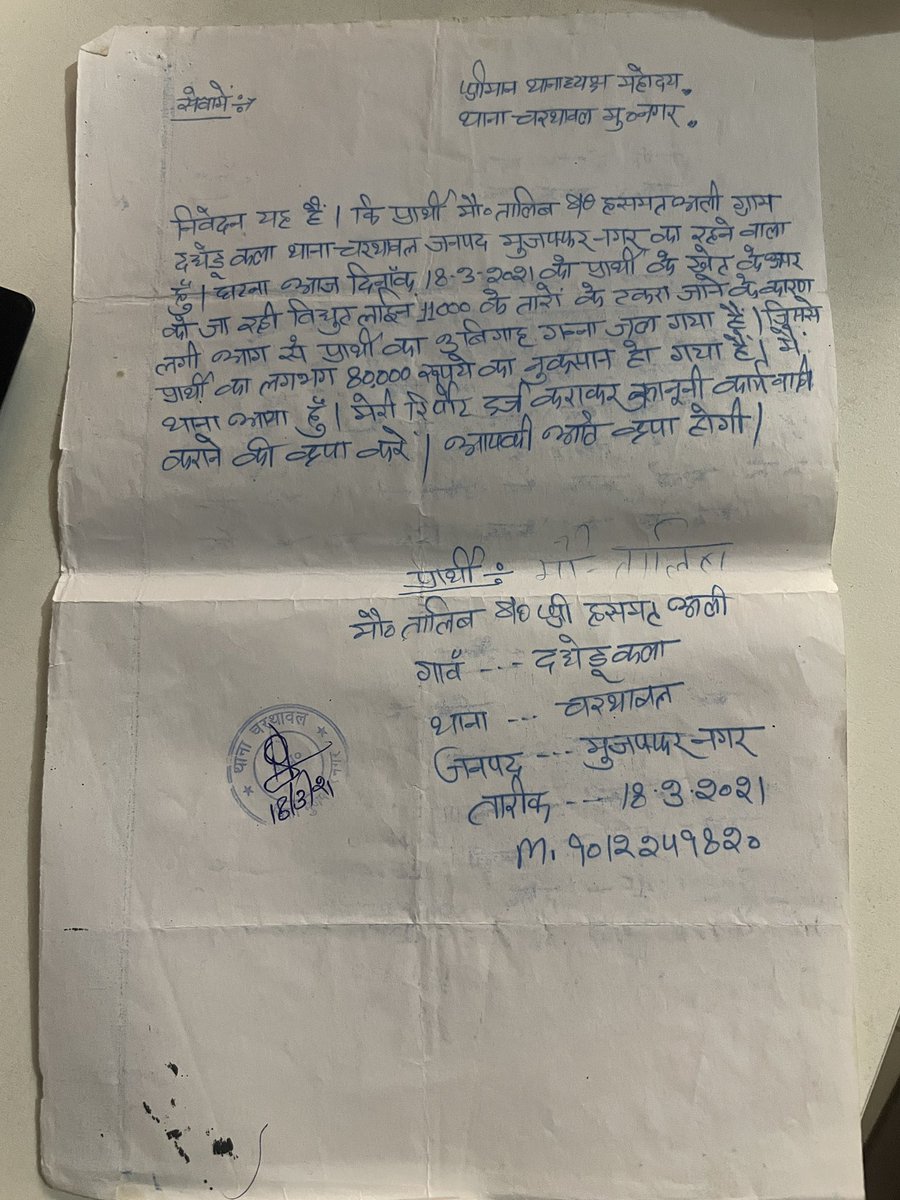 सेवामें :→
श्रीमान थानाध्यक्ष महोदय,
थाना चरथावल मु०नगर.
निवेदन यह हैं। कि प्रार्थी मौ० तालिब S/O हसमत अली ग्राम
दधेडू कला थाना-चरथावल जनपद मुजफ्फरनगर का रहने वाला
हुँ। घटना आज दिनाँक 18-3-2021 को प्रार्थी के खेत के ऊपर
को जा रही विधुत लाईन 11000 के तारों के टकरा जाने के कारण
लगी आग से प्रार्थी का 3 बिगाह गन्ना जल गया है। जिससे
प्रार्थी का लगभग 80,000 रूपये का नुकसान हो गया हैं। मैं
थाना आया हुँ। मेरी रिर्पोट दर्ज कराकर कानूनी कार्यवाही
कराने की कृपा करे। आपकी अति कृपा होगी।
प्रार्थी :- मौ- तालिब
मौ० तालिब S/O श्री हसमत अली
गावँ --- दधेडू कला
थाना --- चरथावल
जनपद --- मुजफ्फरनगर
तारीक --- 18-3-2021
M. 9012251820
थाना चरथावल
18/3/21